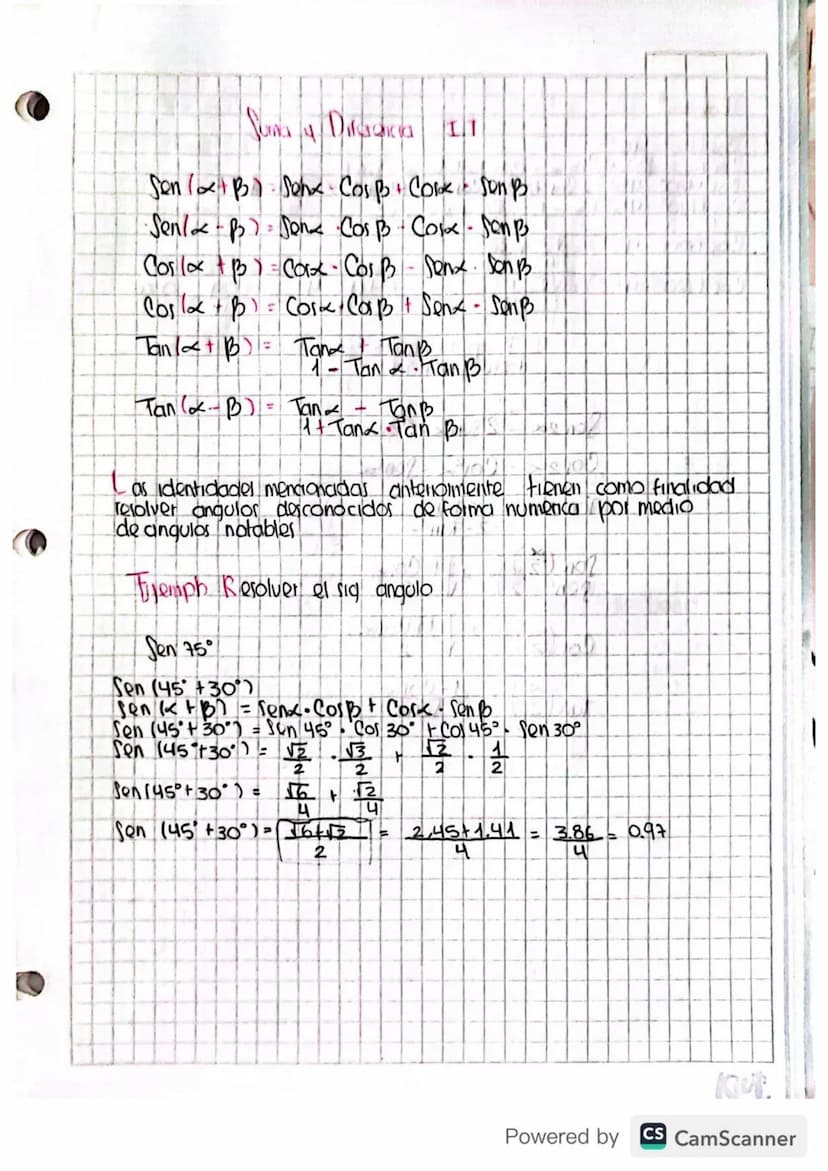 Suma y Diferencia I.T
Sen (α + β) = Senα · Cosβ + Cosα · Senβ
Sen (α - β) = Senα · Cosβ - Cosα · Senβ
Cos (α + β) = Cosα · Cosβ - Senα · Senβ
Cos (α + β) = Cosα · Cosβ + Senα · Senβ
Tan (α + β) = Tanα + Tanβ
1 - Tan α · Tan β
Tan (α - β) = Tanα - Tanβ
1 + Tanα · Tan β
Las identidades mencionadas anteriormente tienen como finalidad
resolver angulos desconocidos de forma numerica por medio
de angulos notables
Ejemplo Resolver el sig angulo
Sen 75°
Sen (45° + 30°)
Sen (α + β) = Senα · Cosβ + Cosα · Senβ
Sen (45° + 30°) = Sen 45° · Cos 30° + Cos 45° · Sen 30°
Sen (45° + 30°) = √2/2 · √3/2 + √2/2 · 1/2
Sen (45° + 30°) = √6/4 + √2/4
Sen (45° + 30°) = √6+√2/2 = 2.45+1.41/4 = 3.86/4 = 0.97
Powered by CS CamScanner